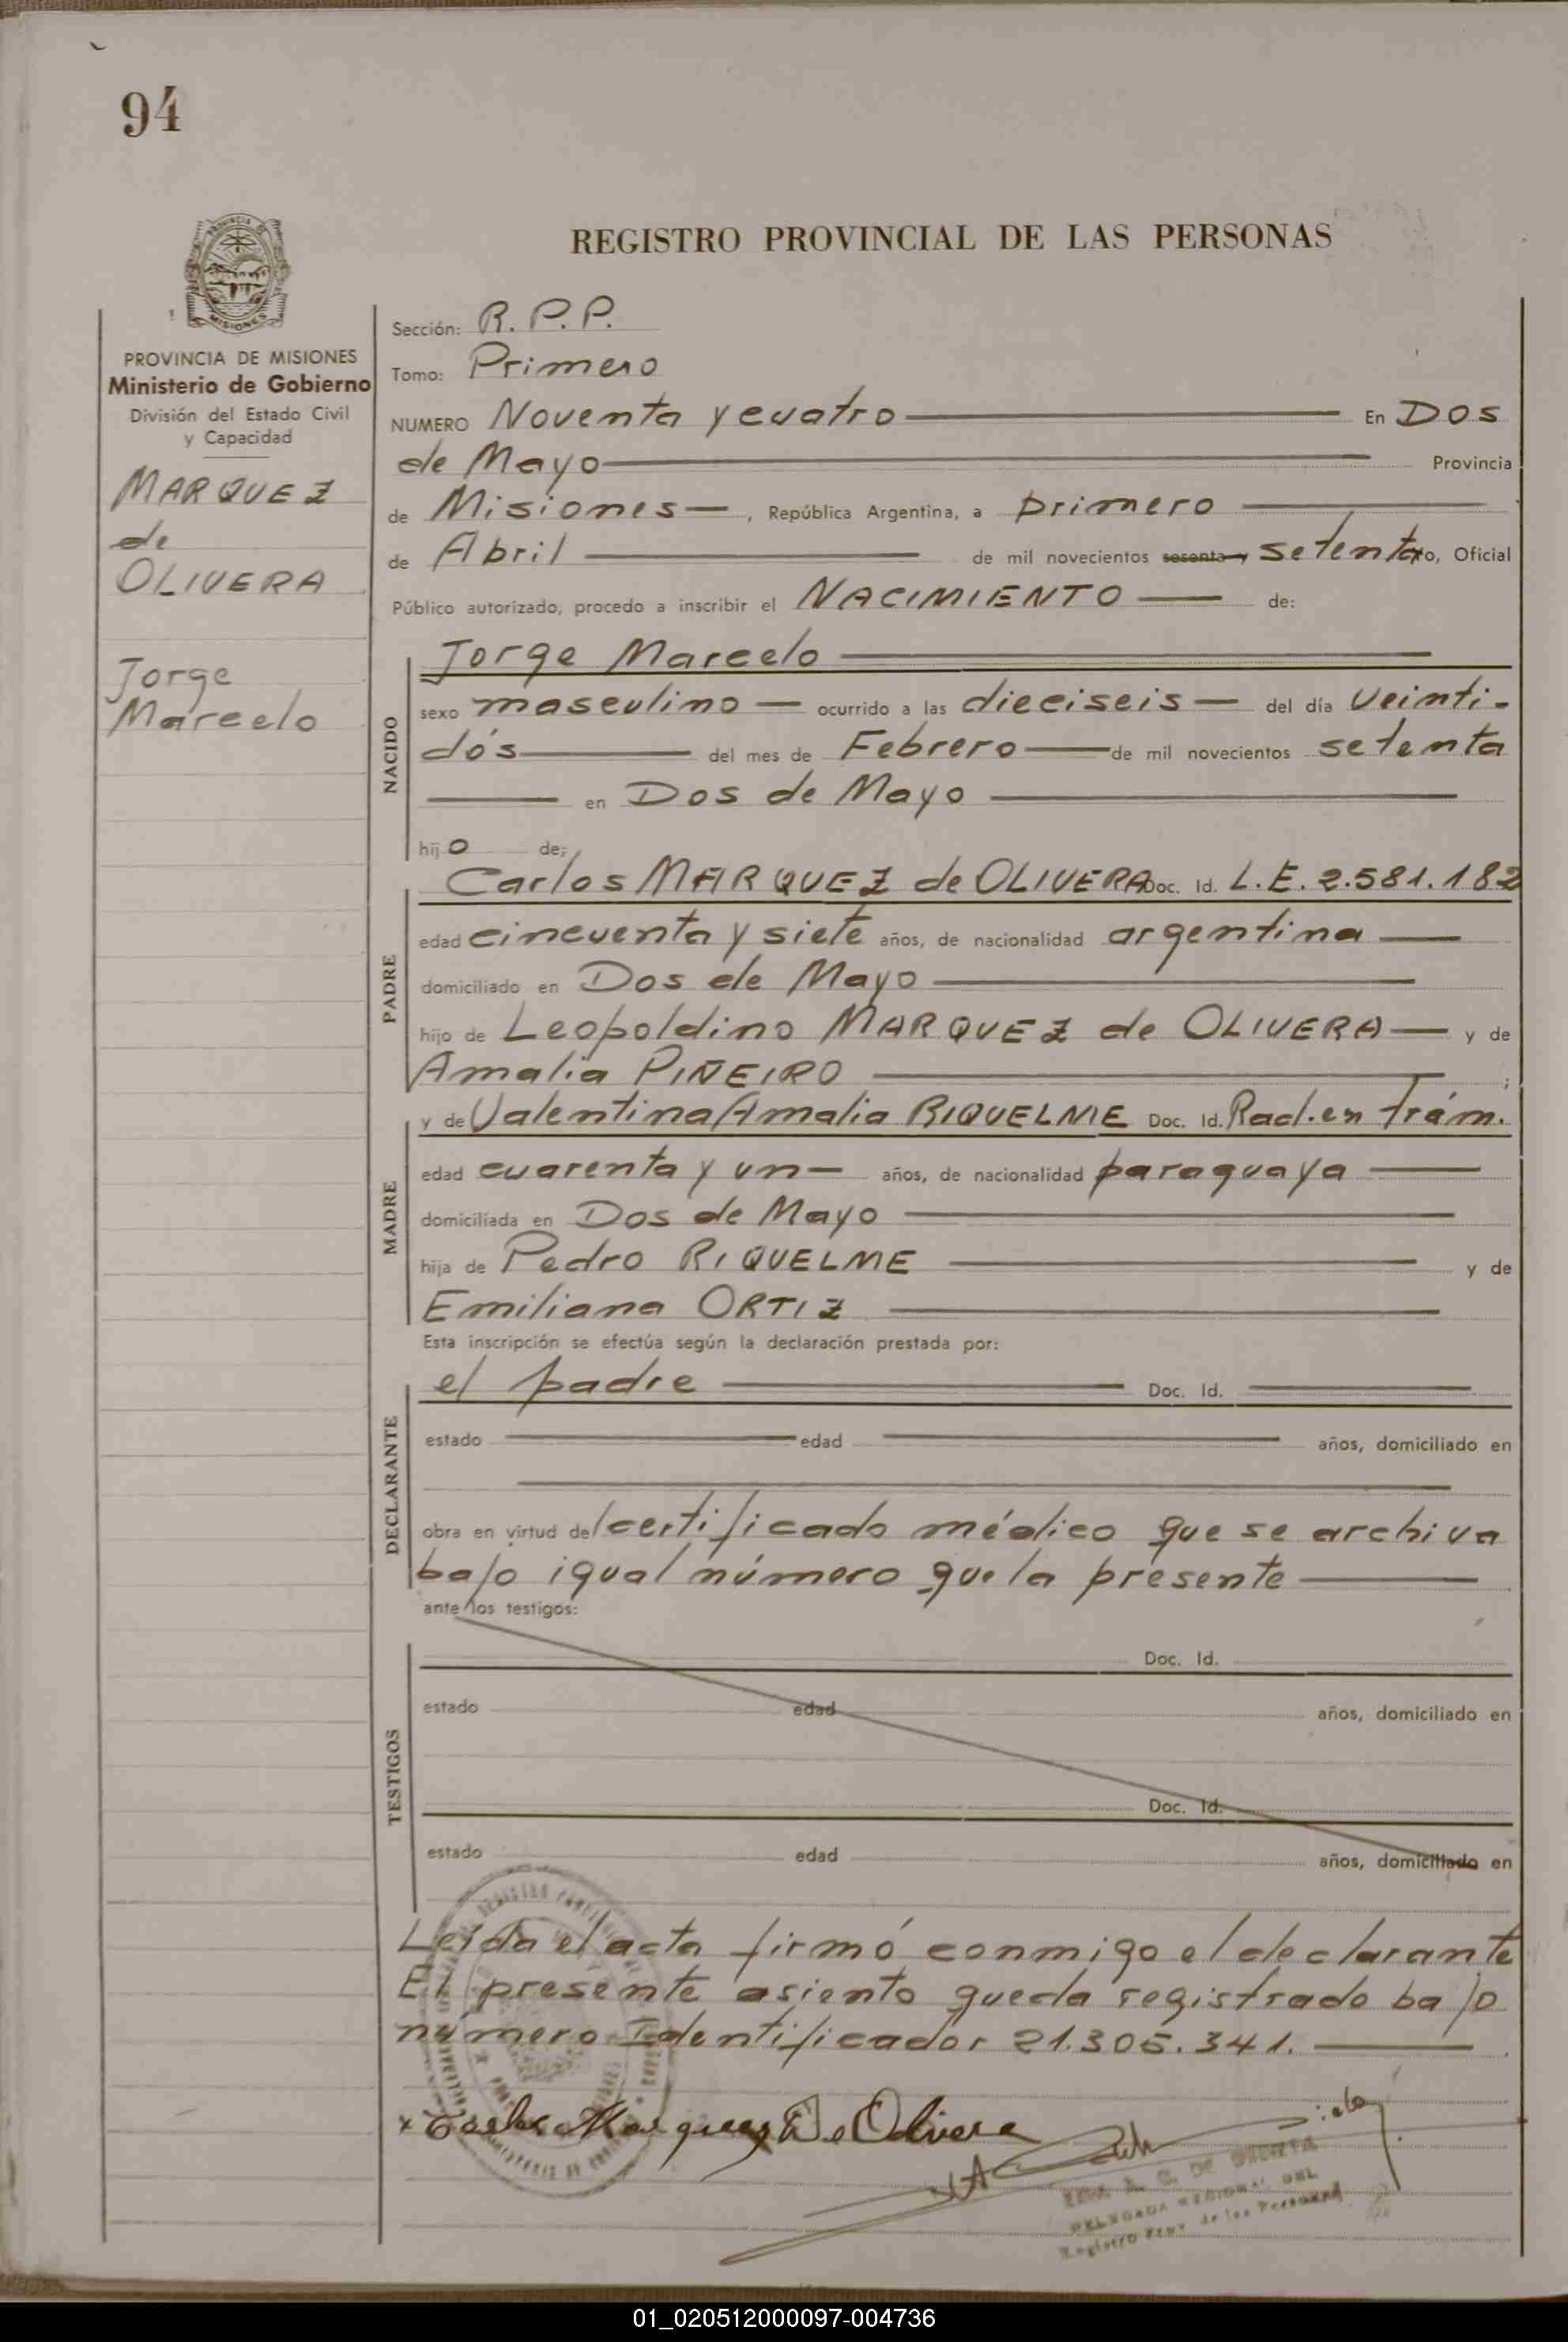 94
PROVINCIA DE MISIONES
Ministerio de Gobierno
División del Estado Civil
y Capacidad
MARQUEZ
de
OLIVERA
Jorge
Marcelo
REGISTRO PROVINCIAL DE LAS PERSONAS
Sección: R. P. P.
Tomo: Primero
NUMERO Noventa y cuatro En Dos
de Mayo Provincia
de Misiones, República Argentina, a primero
de Abril de mil novecientos sesenta y setenta yo, Oficial
Público autorizado, procedo a inscribir el NACIMIENTO de:
NACIDO
Jorge Marcelo
sexo masculino ocurrido a las dieciseis del día veinti-
dós del mes de Febrero de mil novecientos setenta
en Dos de Mayo
hijo de:
PADRE
Carlos MARQUEZ de OLIVERA Doc. Id. L.E. 2.581.182
edad cincuenta y siete años, de nacionalidad argentina
domiciliado en Dos de Mayo
hijo de Leopoldino MARQUEZ de OLIVERA y de
Amalia PIÑEIRO ;
MADRE
y de Valentina Amalia RIQUELME Doc. Id. Rad. en Trám.
edad cuarenta y un años, de nacionalidad paraguaya
domiciliada en Dos de Mayo
hija de Pedro RIQUELME y de
Emiliana ORTIZ
Esta inscripción se efectúa según la declaración prestada por:
DECLARANTE
el padre Doc. Id.
estado edad años, domiciliado en
obra en virtud del certificado médico que se archiva
bajo igual número que la presente
ante los testigos:
TESTIGOS
Doc. Id.
estado edad años, domiciliado en
Doc. Id.
estado edad años, domiciliado en
Leída el acta firmó conmigo el declarante
El presente asiento queda registrado bajo
número Identificador 21.305.341.
x Carlos Marquez De Olivera
DELEGADA REGIONAL DEL
Registro Prov. de las Personas
01_020512000097-004736